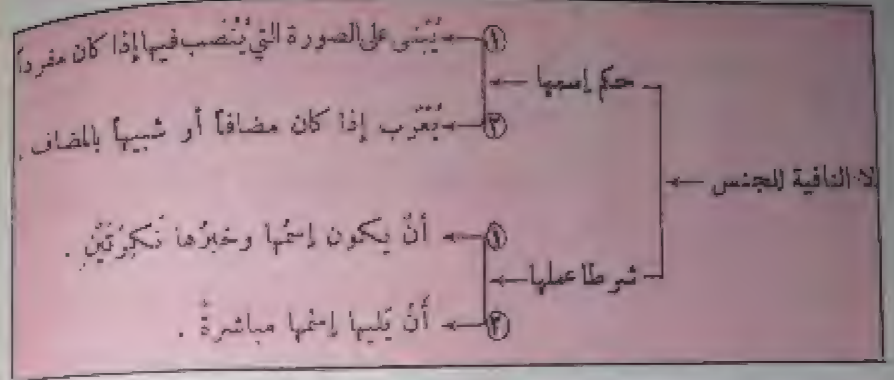 لا النافية للجنس
حكم إسمها
١ يُبْنى على الصورة التي يُنْصب فيها إذا كان مفرداً
٢ يُعْرَب إذا كان مضافاً أو شبيهاً بالمضاف .
شرطا عملها
١ أنْ يكون إسمُها وخبرُها نَكِرَتَيْنِ .
٢ أَنْ يَليها إسمُها مباشرةً .